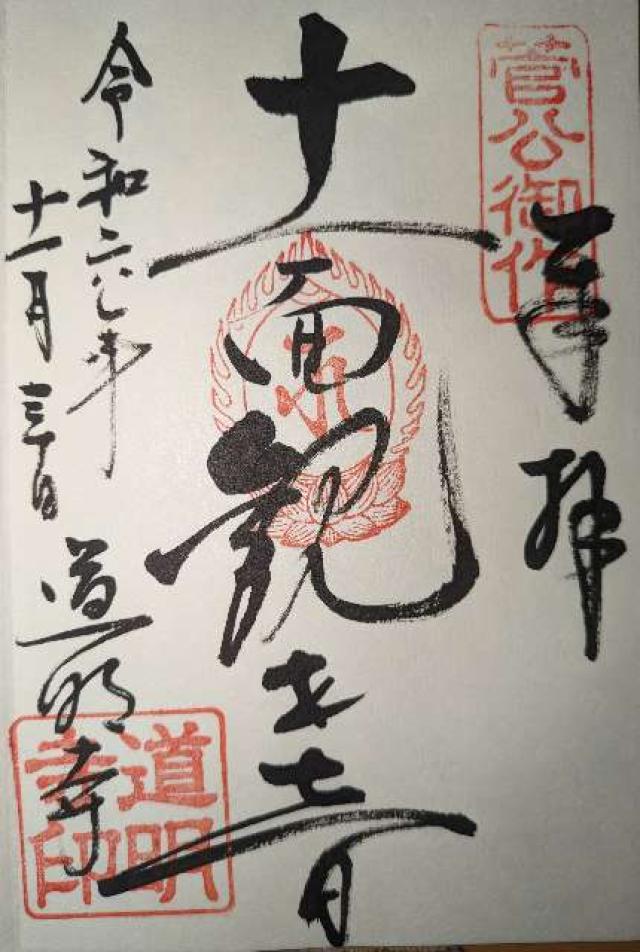 菅公御作
奉拝
十一面観世音
令和六年
十一月三十日
道明寺
道明寺印